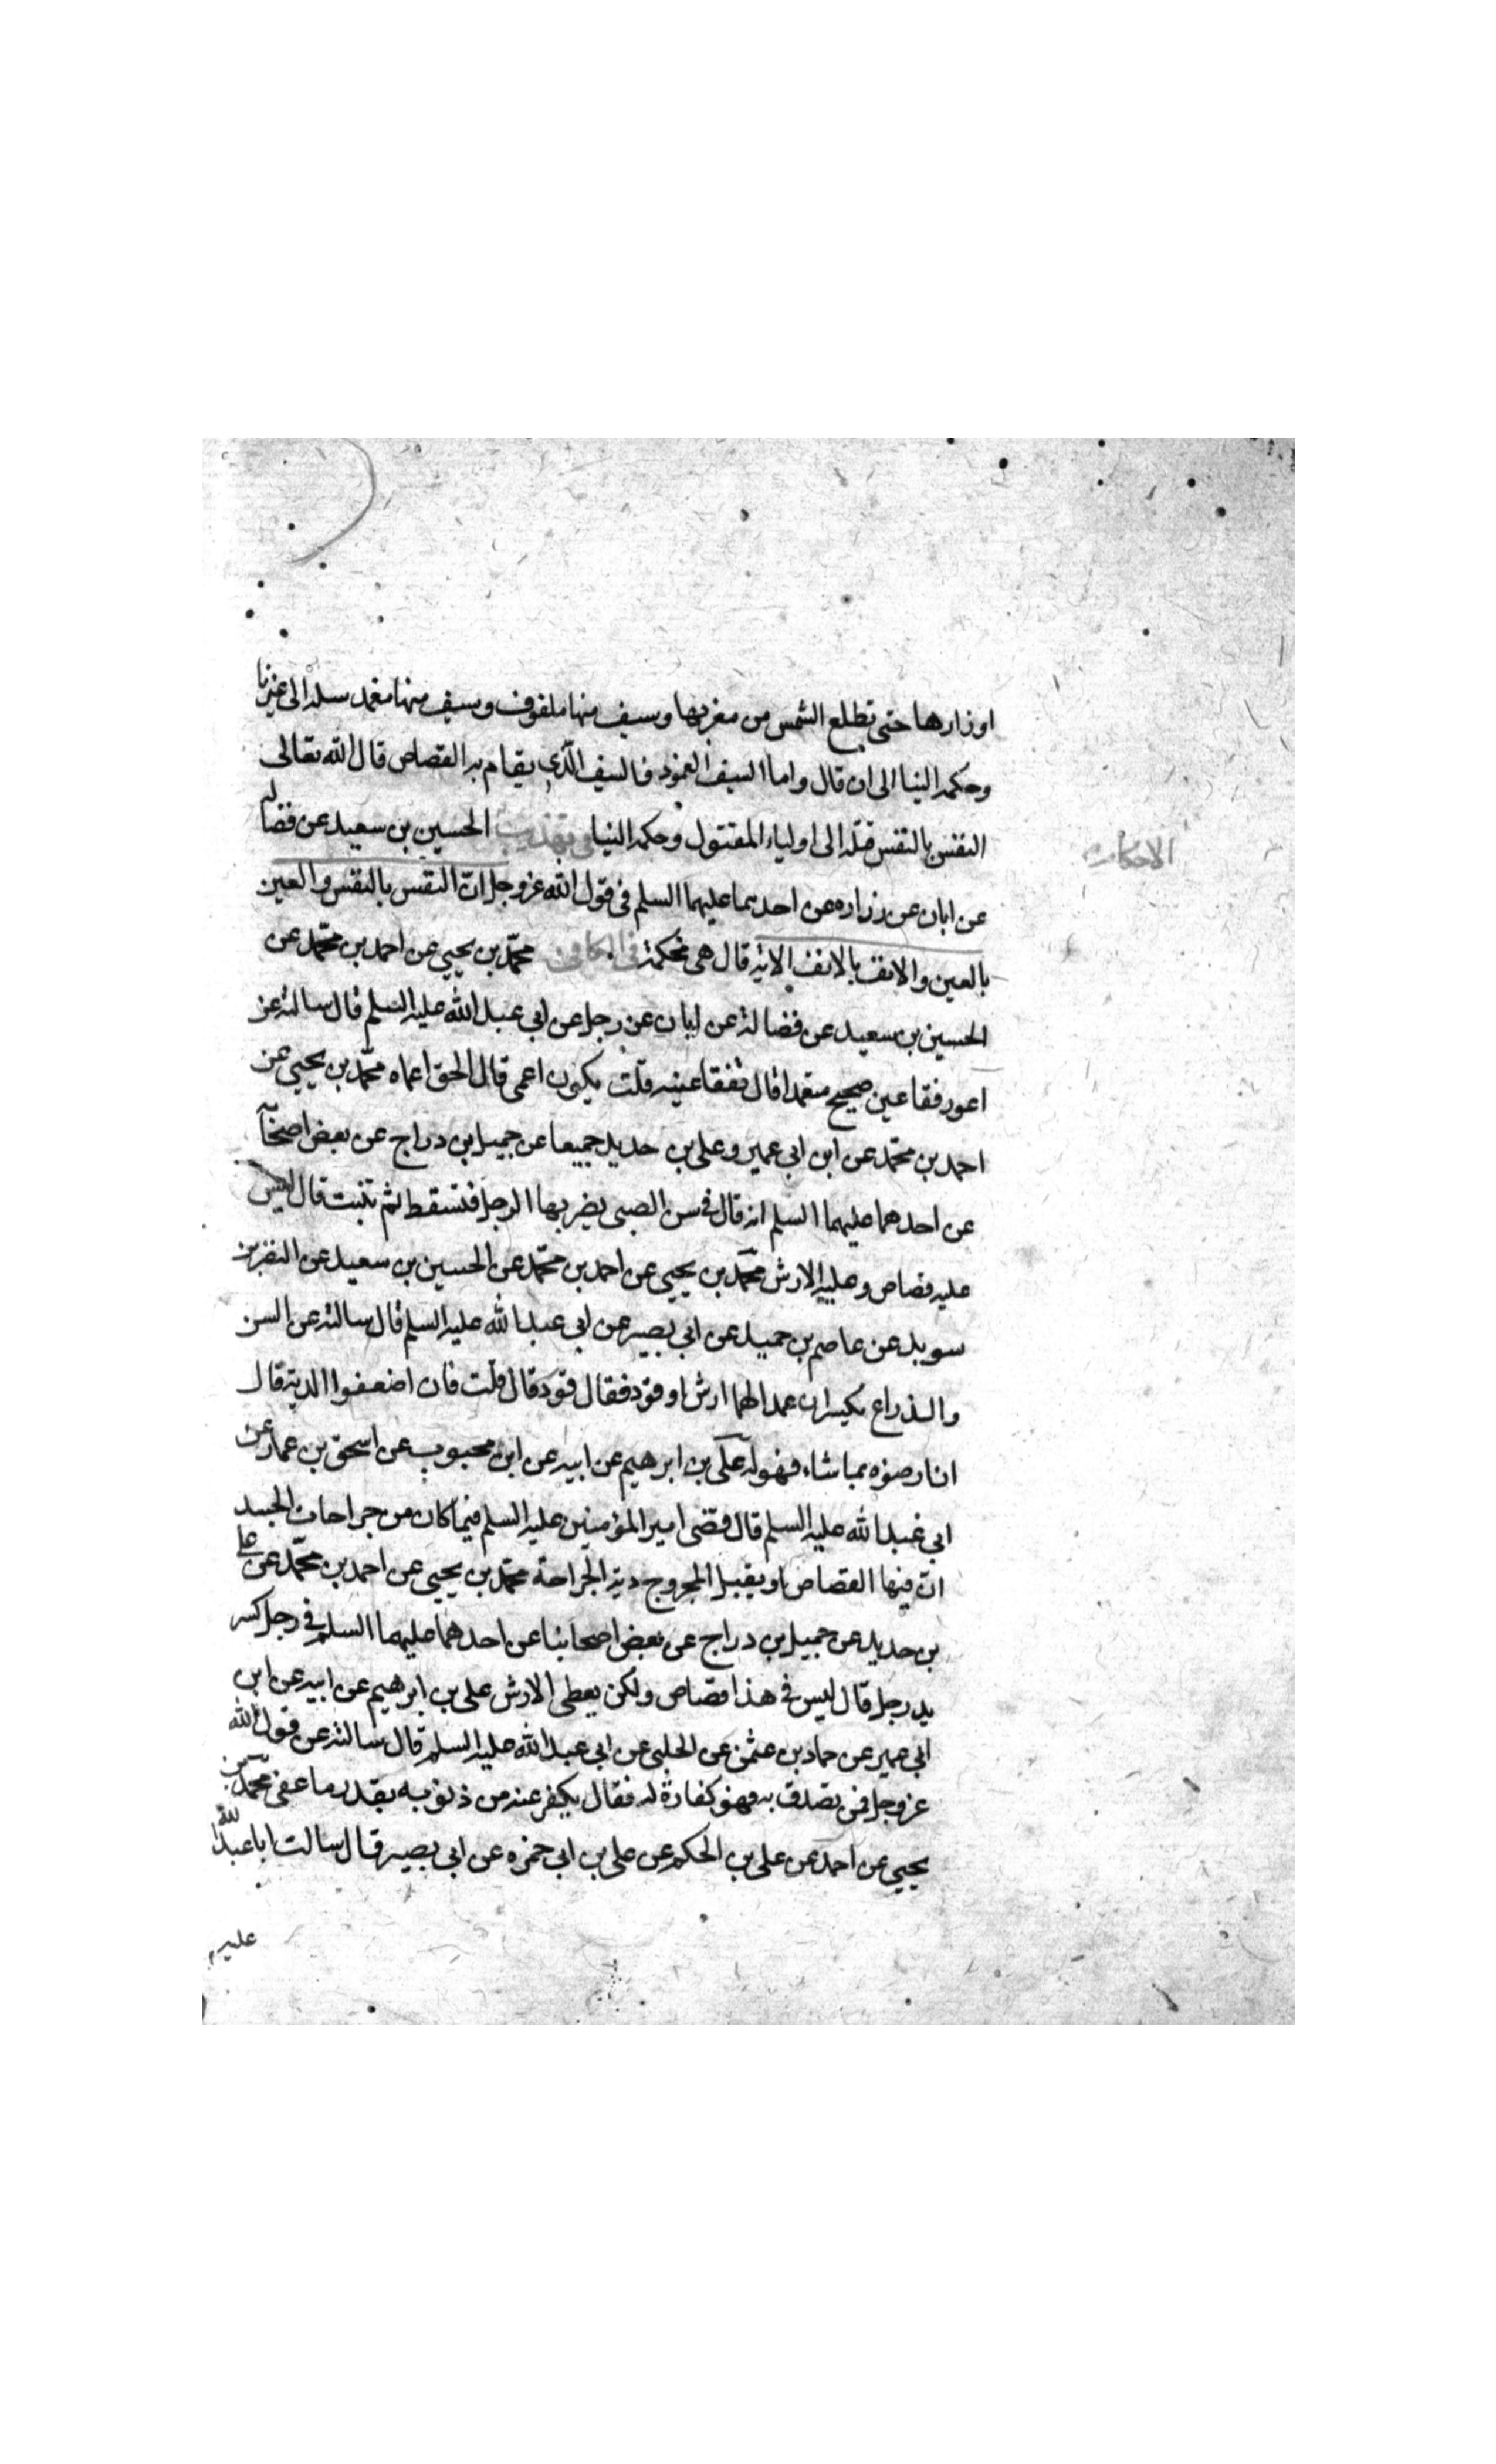 اوزارها حتى تطلع الشمس من مغربها وسيف منها ملفوف وسيف منها مغمد سله الى غيرنا
وحكمه الينا الى ان قال واما السيف المغمود فالسيف الذى يقام به القصاص قال الله تعالى
النفس بالنفس فسله الى اولياء المقتول وحكمه الينا وفى تهذيب الحسين بن سعيد عن فضاله
الاحكام
عن ابان عن زراره عن احدهما عليهما السلم فى قول الله عز وجل ان النفس بالنفس والعين
بالعين والانف بالانف الاية قال هى محكمة فى الكافى محمد بن يحيى عن احمد بن محمد عن
الحسين بن سعيد عن فضالة عن ابان عن رجل عن ابى عبد الله عليه السلم قال سالته عن
اعور فقا عين صحيح متعمدا قال تفقا عينه قلت يكون اعمى قال الحق اعماه محمد بن يحيى عن
احمد بن محمد عن ابن ابى عمير وعلى بن حديد جميعا عن جميل بن دراج عن بعض اصحابنا
عن احدهما عليهما السلم انه قال فى سن الصبى يضربها الرجل فتسقط ثم تنبت قال ليس
عليه قصاص وعليه الارش محمد بن يحيى عن احمد بن محمد عن الحسين بن سعيد عن النضر بن
سويد عن عاصم بن حميد عن ابى بصير عن ابى عبد الله عليه السلم قال سالته عن السن
والذراع يكسران عمدا لهما ارش او قود فقال قود قال قلت فان اضعفوا الدية قال
ان ارضوه بما شاء فهو له على بن ابرهيم عن ابيه عن ابن محبوب عن اسحق بن عمار عن
ابى عبد الله عليه السلم قال قضى امير المؤمنين عليه السلم فيما كان من جراحات الجسد
ان فيها القصاص او يقبل المجروح دية الجراحة محمد بن يحيى عن احمد بن محمد عن على
بن حديد عن جميل بن دراج عن بعض اصحابنا عن احدهما عليهما السلم فى رجل كسر
يد رجل قال ليس فى هذا قصاص ولكن يعطى الارش على بن ابرهيم عن ابيه عن ابن
ابى عمير عن حماد بن عثمن عن الحلبى عن ابى عبد الله عليه السلم قال سالته عن قول الله
عز وجل فمن تصدق به فهو كفارة له فقال يكفر عنه من ذنوبه بقدر ما عفى محمد بن
يحيى عن احمد عن على بن الحكم عن على بن ابى حمزه عن ابى بصير قال سالت ابا عبد الله
عليه